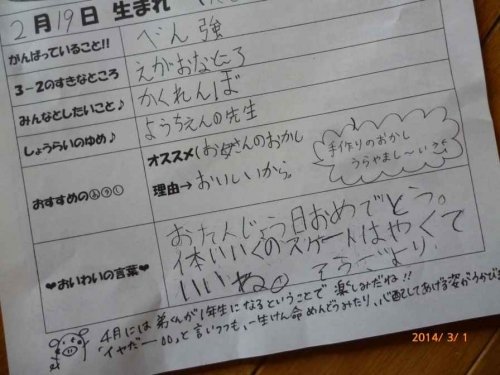 2月19日 生まれ
がんばっていること!! べん強
3-2のすきなところ えがおなところ
みんなとしたいこと♪ かくれんぼ
しょうらいのゆめ♪ ようちえんの先生
おすすめの オススメ(お母さんのおかし
理由→おいしいから。
手作りのおかし
うらやまし～い
♥おいわいの言葉♥ おたんじょう日おめでとう。
体いくのスケートはやくて
いいね。 より
4月には弟くんが1年生になるということで 楽しみだね!!
「イヤだー」と言いつつも、一生けん命めんどうみたり、心配してあげる姿が
2014/3/1